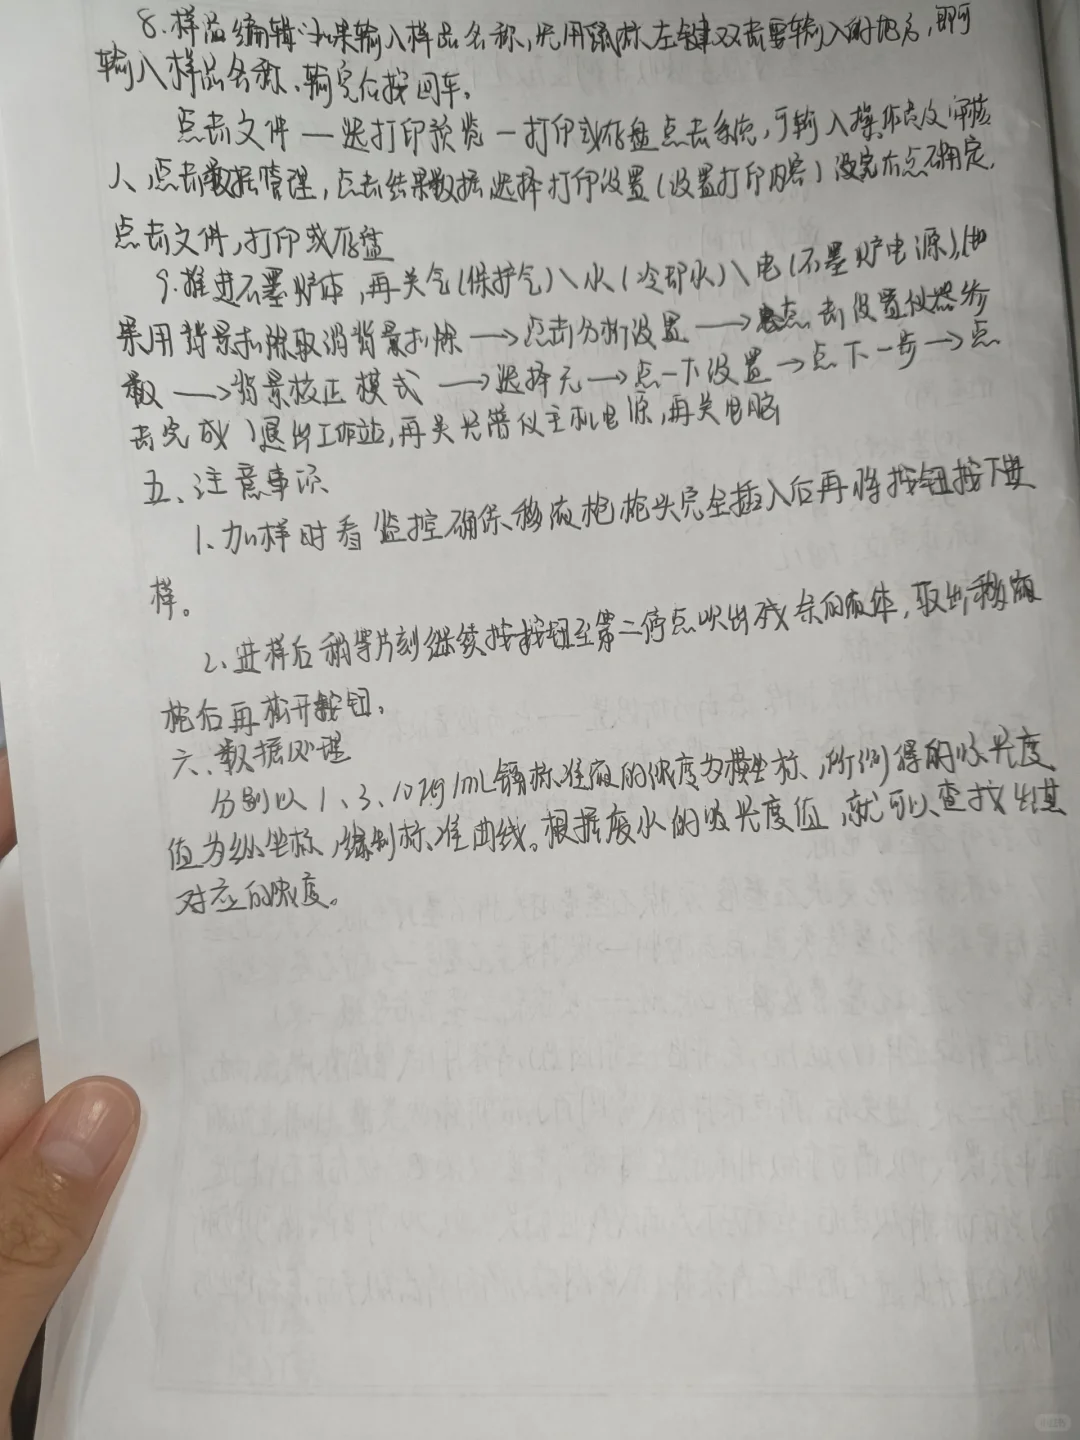 8.样品编辑:如果输入样品名称,先用鼠标左键双击要输入的地方,即可
输入样品名称、输完后按回车。
点击文件—选打印预览—打印或存盘点击系统,可输入操作员及审核
人、点击数据管理,点击结果数据选择打印设置(设置打印内容)设完右点确定,
点击文件,打印或存盘
9.推进石墨炉体,再关气(保护气)\水(冷却水)\电(石墨炉电源),(如
果用背景扣除取消背景扣除→点击分析设置→点击设置仪器参
数→背景校正模式→选择无→点一下设置→点下一步→点
击完成)退出工作站,再关光谱仪主机电源,再关电脑
五、注意事项
1、加样时看监控确保移液枪枪头完全插入后再将按钮按下进
样。
2、进样后稍等片刻继续按按钮至第二停点吹出残余的液体,取出移液
枪后再松开按钮,
六、数据处理
分别以1、3、10 /mL镉标准液的浓度为横坐标、所测得的吸光度
值为纵坐标,绘制标准曲线。根据废水的吸光度值,就可以查找出其
对应的浓度。
小红书